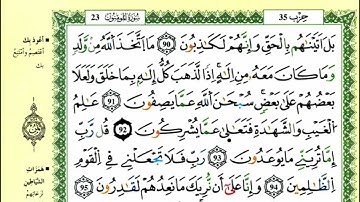 حزب 35
سورة المؤمنون
23
بَلْ أَتَيْنَٰهُم بِالْحَقِّ وَإِنَّهُمْ لَكَٰذِبُونَ 90 مَا اتَّخَذَ اللَّهُ مِن وَلَدٍ
وَمَا كَانَ مَعَهُ مِنْ إِلَٰهٍ إِذًا لَّذَهَبَ كُلُّ إِلَٰهٍ بِمَا خَلَقَ وَلَعَلَا
بَعْضُهُمْ عَلَىٰ بَعْضٍ سُبْحَٰنَ اللَّهِ عَمَّا يَصِفُونَ 91 عَٰلِمِ
الْغَيْبِ وَالشَّهَٰدَةِ فَتَعَٰلَىٰ عَمَّا يُشْرِكُونَ 92 قُل رَّبِّ
إِمَّا تُرِيَنِّي مَا يُوعَدُونَ 93 رَبِّ فَلَا تَجْعَلْنِي فِي الْقَوْمِ
الظَّٰلِمِينَ 94 وَإِنَّا عَلَىٰ أَن نُّرِيَكَ مَا نَعِدُهُمْ لَقَٰدِرُونَ 95
أعوذ بك
أعتصم وأمتنع
بك
همزات
الشياطين
نزغاتهم